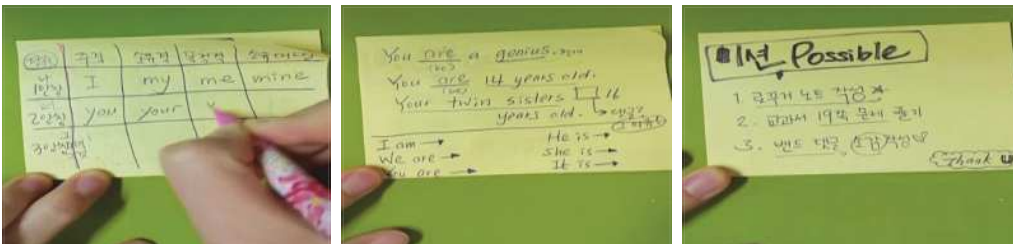 주격 소유격 목적격 소유대명사
1인칭 I my me mine
2인칭 you your y
3인칭
You are a genius.
(be)
You are 14 years old.
(be)
Your twin sisters 16
years old.
I am → He is →
We are → She is →
You are → It is →
미션 Possible
1. 노트 작성
2. 교과서 19쪽 문제 풀기
3. 밴드 댓글 소감 작성
Thank U